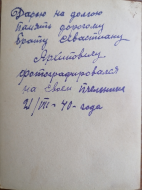 Дарю на долгою
память дорогому
брату Севастиану
Архиповичу
фотографировался
на своем пчельнике
2/VIII - 48 - года